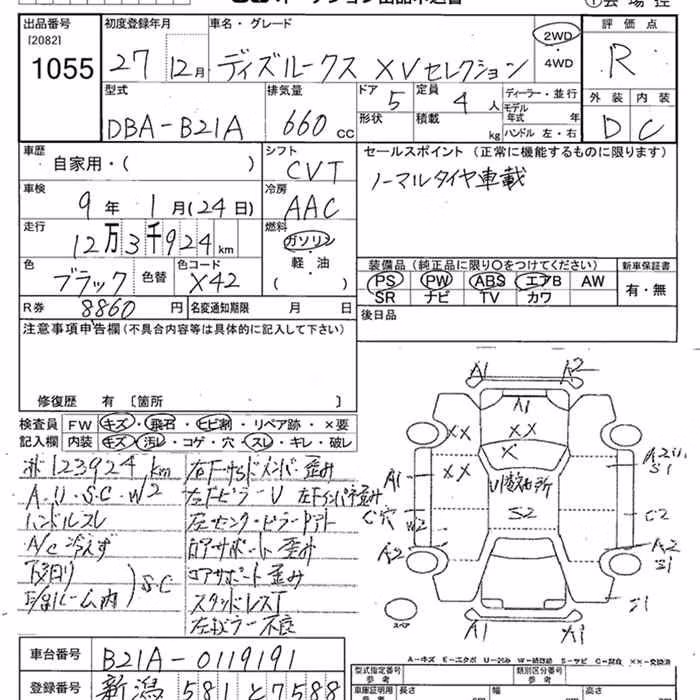 出品番号 初度登録年月 車名・グレード 評価点
[2082] 27 12月 ディズルークス XVセレクション 2WD R
1055 4WD
型式 排気量 ドア 定員 ディーラー・並行 外装 内装
DBA-B21A 660 cc 5 4人 モデル年式 年 D C
形状 積載 kg ハンドル 左・右
車歴 シフト セールスポイント (正常に機能するものに限ります)
自家用・( ) CVT ノーマルタイヤ車載
車検 冷房
9年 1月(24日) AAC
走行 燃料
12万3千924km ガソリン
軽・油
( )
色 色替 色コード 装備品 (純正品に限り○をつけてください) 新車保証書
ブラック X42 PS PW ABS エアB AW 有・無
SR ナビ TV カワ
R券 8860円 名変通知期限 月 日 後日品
注意事項申告欄(不具合内容等は具体的に記入して下さい)
修復歴 有 [箇所 ]
検査員 FW キズ・飛石・ヒビ割・リペア跡・×要
記入欄 内装 キズ・汚レ・コゲ・穴・スレ・キレ・破レ
123924km 歪み
A・U・S・C・W2 左Fピラー U 左Fインパネ歪み
ハンドルスレ 左センターピラー
A/C冷えず リアサポート歪み
下廻り S・C コアサポート歪み
ルーム内
不良
A1 A2
A1
XX XX
X
XX
A1 S1
C穴 W2 S2 C2
A2 A2
S1
S1
スペア A1 A1
A-キズ E-エクボ U-凹み W-補修跡 S-サビ C-腐食 XX-交換済
車台番号 B21A-0119191
型式指定番号 参考 類別区分番号 参考
登録番号 新潟 581 と 7588
車庫証明用 参考 長さ 幅 高さ